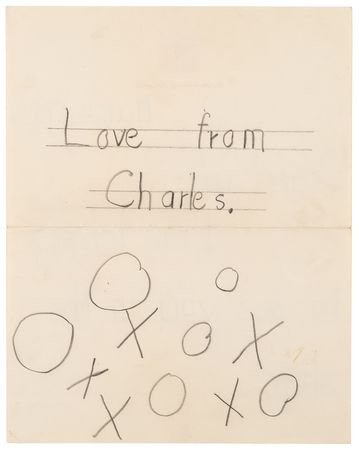 Love from
Charles.
O O
O X O X
X O X O
X